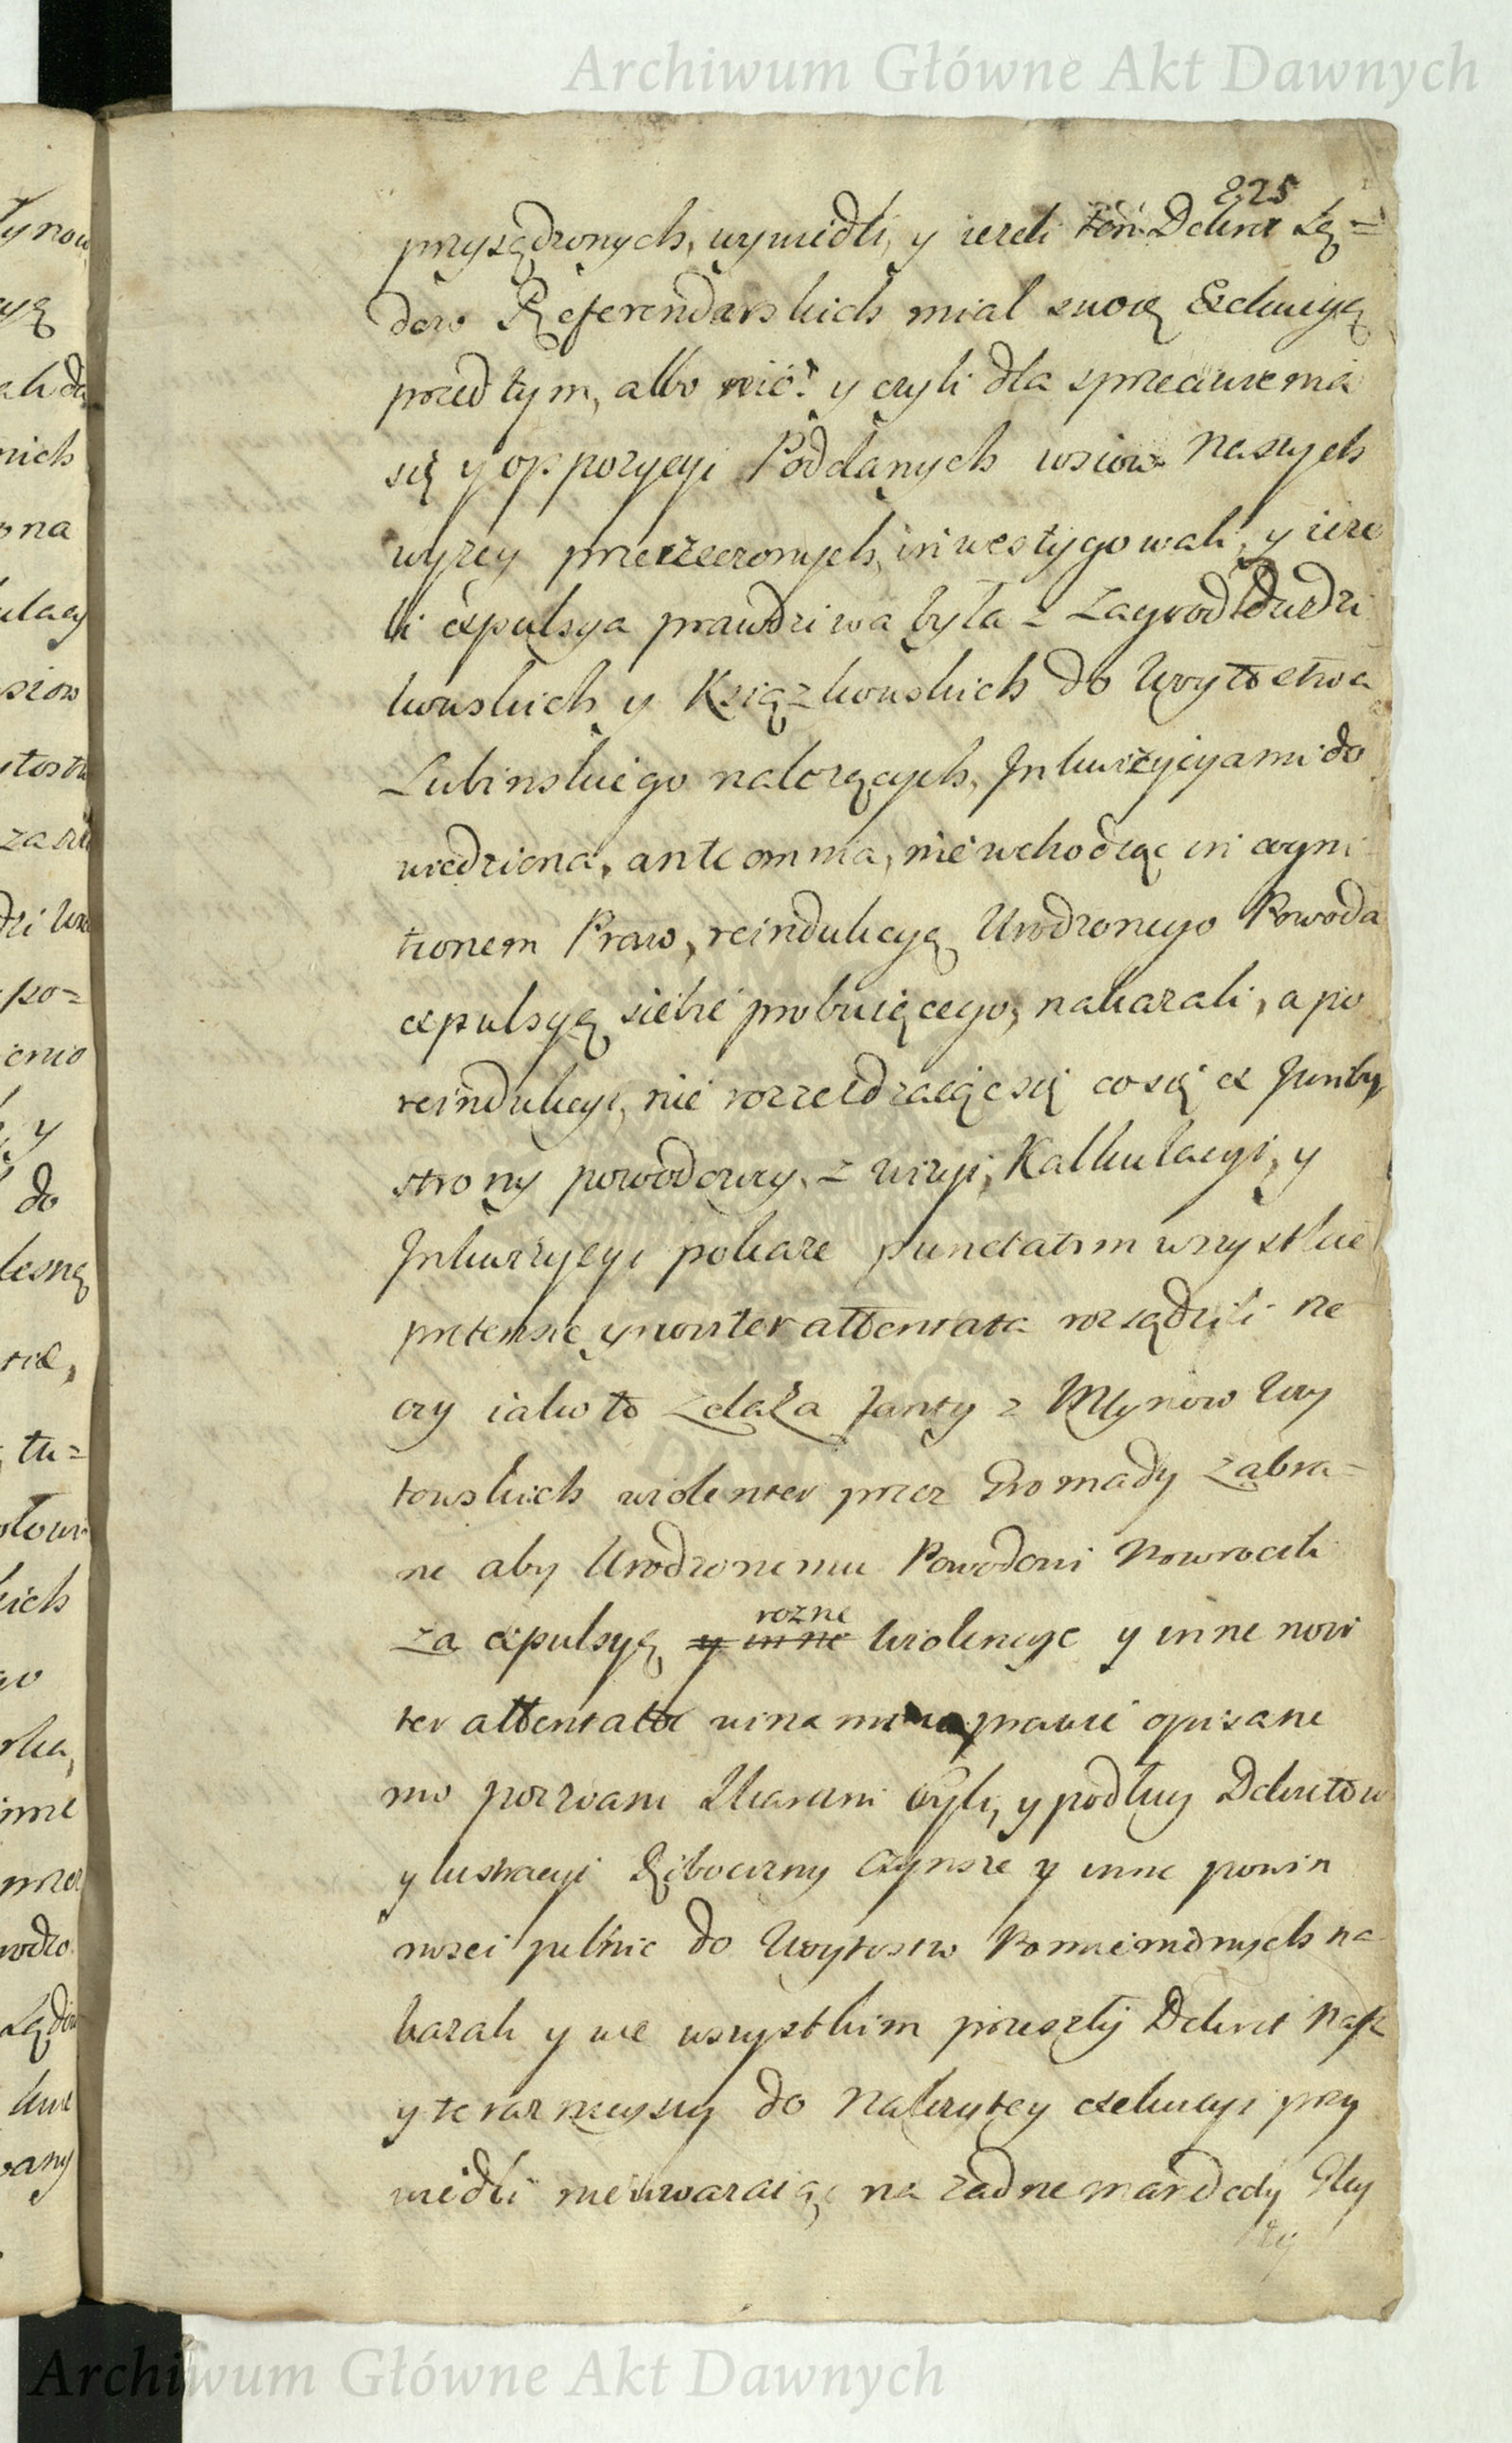 Archiwum Główne Akt Dawnych
825
przysądzonych, wywiedli, y iezeli ten Dekret Są=
dow Referendarskich miał swoię Exekucyą
przed tym, albo nie? y czyli dla sprzeciwienia
się y oppozycyi Poddanych wsiow Naszych
wyzey przerzeczonych, inwestygowali, y ieze
li expulsya prawdziwa była z Zagrod
kowskich y Ksiązkowskich do Woytostwa
Lubinskiego nalezących, Inkwizycyami do
wiedziona, ante omnia, nie wchodząc in cogni
tionem Praw, reindukcyą Urodzonego Powoda
expulsyą siebie probuiącego, nakazali, a po
reindukcyi, nie rozieżdzaiąc się co się ex
strony powodowey, z wizyi, Kalkulacyi, y
Inkwizycyi pokaze punctatim wszystkie
pretensie y noviter attentata rozsądzili rze
czy iako to Żelaza fanty z Młynow Woy
towskich violenter przez Gromady zabra=
ne aby Urodzonemu Powodowi powrocili
za expulsyą y inne rozne wiolencye y inne novi
ter attentata winami w prawie opisane
mi pozwani Ukarani byli, y podług Dekretow
y lustracyi czynsze y inne powin
nosci pełnic do Woytostw Pomienionych na
kazali y we wszystkim przeszły Dekret Nasz
y teraznieyszy do Nalezytey exekucyi przy
wiedli nieuwazaiąc na zadne mandaty Gley
Archiwum Główne Akt Dawnych